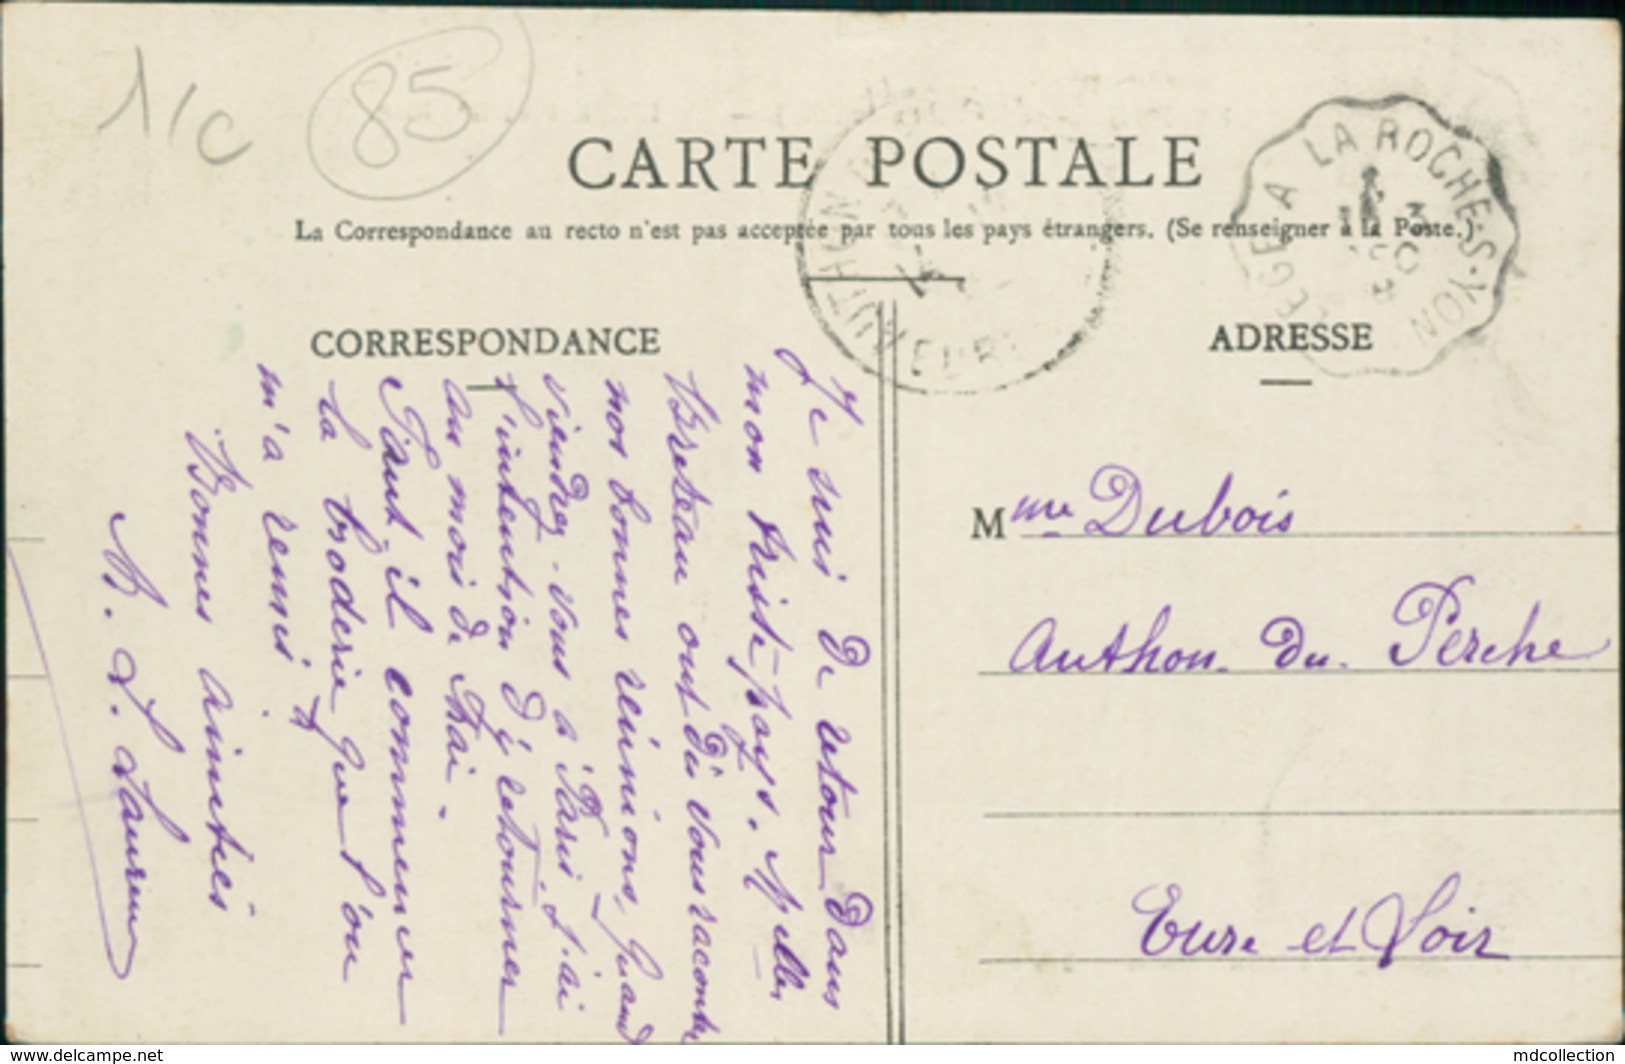 11C
85
CARTE POSTALE
La Correspondance au recto n'est pas acceptée par tous les pays étrangers. (Se renseigner à la Poste.)
LEGE A LA ROCHE-S-YON
CORRESPONDANCE
ADRESSE
Je suis de retour dans
mon triste pays. Melles
Breteau ont dû vous raconter
nos bonnes réunions, Quand
viendrez-vous à Paris J'ai
l'intention d'y retourner
au mois de Mai.
Faut-il commencer
la broderie que l'on
m'a remis?
Bonnes amitiés
Mme Dubois
Authon. du. Perche
Eure et Loir
www.delcampe.net
mdcollection